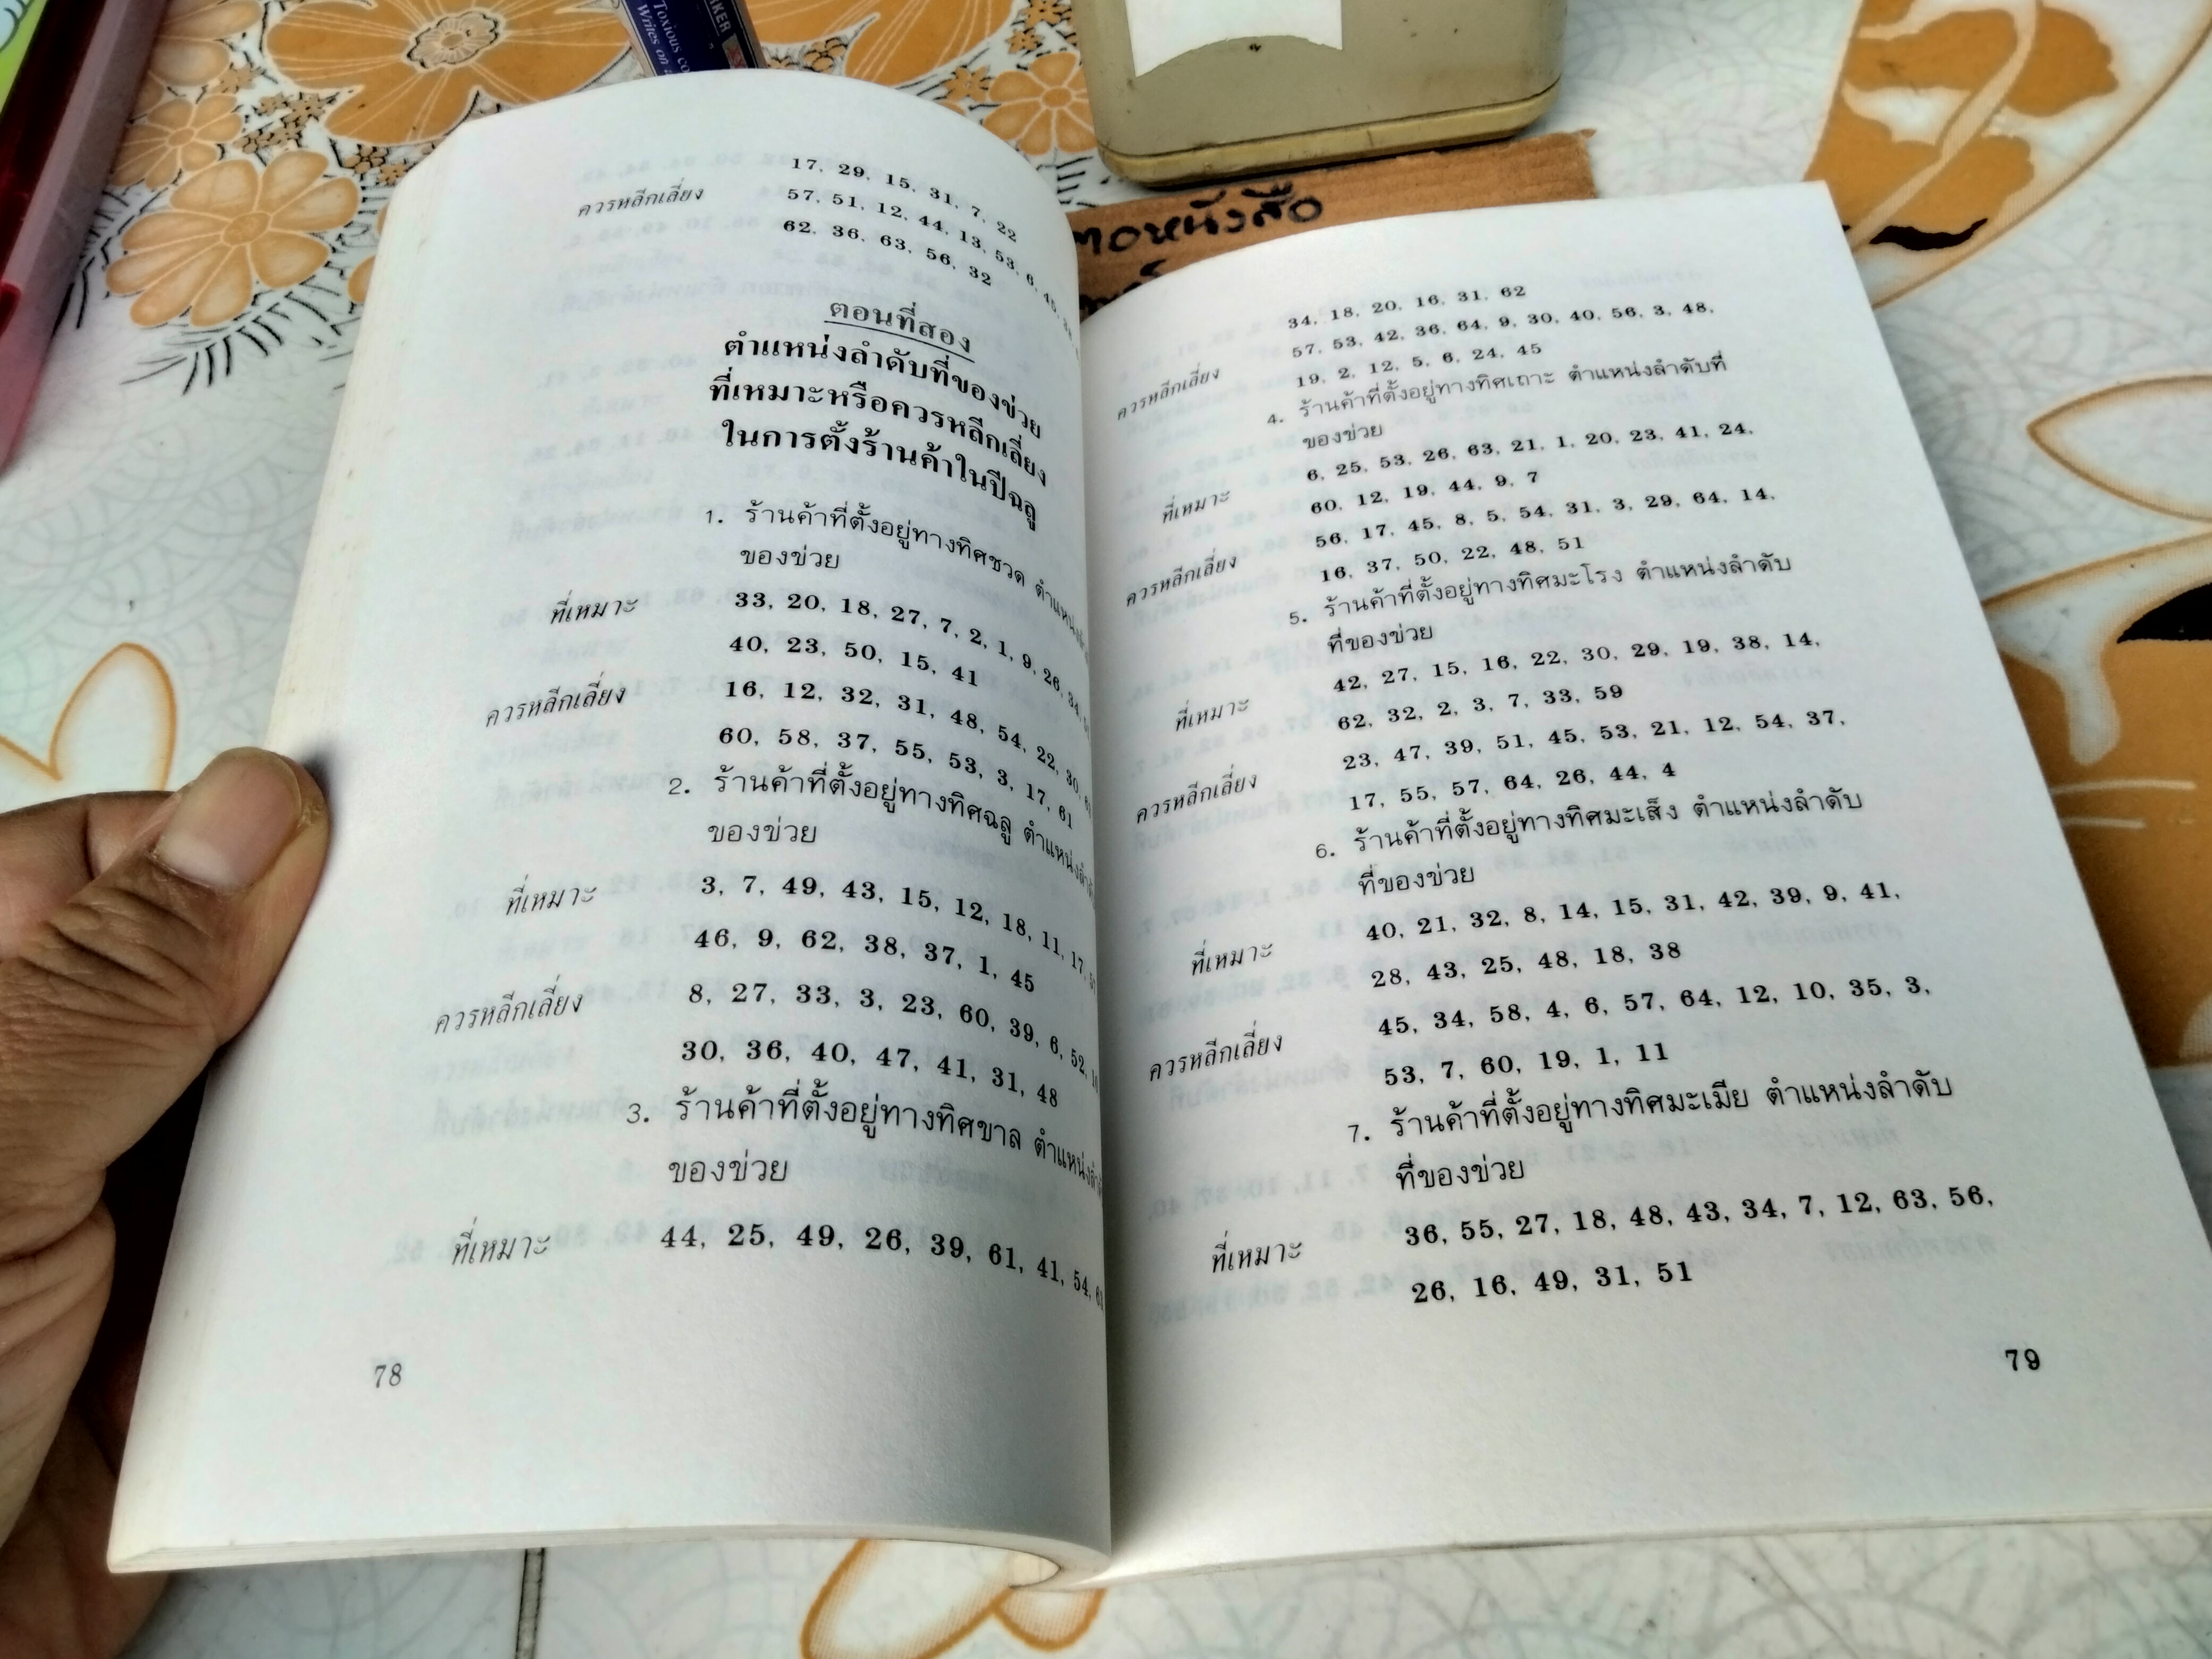 KER
Toxious co
Writes on
ตอหนังสือ
17, 29, 15, 31, 7, 22
ควรหลีกเลี่ยง 57, 51, 12, 44, 13, 53, 6, 45,
62, 36, 63, 56, 32
ตอนที่สอง
ตำแหน่งลำดับที่ของข่วย
ที่เหมาะหรือควรหลีกเลี่ยง
ในการตั้งร้านค้าในปีฉลู
1. ร้านค้าที่ตั้งอยู่ทางทิศชวด
ของข่วย
ที่เหมาะ 33, 20, 18, 27, 7, 2, 1, 9, 26, 34,
40, 23, 50, 15, 41
ควรหลีกเลี่ยง 16, 12, 32, 31, 48, 54, 22, 30,
60, 58, 37, 55, 53, 3, 17, 61
2. ร้านค้าที่ตั้งอยู่ทางทิศฉลู
ของข่วย
ที่เหมาะ 3, 7, 49, 43, 15, 12, 18, 11, 17,
46, 9, 62, 38, 37, 1, 45
ควรหลีกเลี่ยง 8, 27, 33, 3, 23, 60, 39, 6, 52,
30, 36, 40, 47, 41, 31, 48
3. ร้านค้าที่ตั้งอยู่ทางทิศขาล
ของข่วย
ที่เหมาะ 44, 25, 49, 26, 39, 61, 41, 54,
78
34, 18, 20, 16, 31, 62
ควรหลีกเลี่ยง 57, 53, 42, 36, 64, 9, 30, 40, 56, 3, 48,
19, 2, 12, 5, 6, 24, 45
4. ร้านค้าที่ตั้งอยู่ทางทิศเถาะ ตำแหน่งลำดับที่
ของข่วย
ที่เหมาะ 6, 25, 53, 26, 63, 21, 1, 20, 23, 41, 24,
60, 12, 19, 44, 9, 7
ควรหลีกเลี่ยง 56, 17, 45, 8, 5, 54, 31, 3, 29, 64, 14,
16, 37, 50, 22, 48, 51
5. ร้านค้าที่ตั้งอยู่ทางทิศมะโรง ตำแหน่งลำดับ
ที่ของข่วย
ที่เหมาะ 42, 27, 15, 16, 22, 30, 29, 19, 38, 14,
62, 32, 2, 3, 7, 33, 59
ควรหลีกเลี่ยง 23, 47, 39, 51, 45, 53, 21, 12, 54, 37,
17, 55, 57, 64, 26, 44, 4
6. ร้านค้าที่ตั้งอยู่ทางทิศมะเส็ง ตำแหน่งลำดับ
ที่ของข่วย
ที่เหมาะ 40, 21, 32, 8, 14, 15, 31, 42, 39, 9, 41,
28, 43, 25, 48, 18, 38
ควรหลีกเลี่ยง 45, 34, 58, 4, 6, 57, 64, 12, 10, 35, 3,
53, 7, 60, 19, 1, 11
7. ร้านค้าที่ตั้งอยู่ทางทิศมะเมีย ตำแหน่งลำดับ
ที่ของข่วย
ที่เหมาะ 36, 55, 27, 18, 48, 43, 34, 7, 12, 63, 56,
26, 16, 49, 31, 51
79